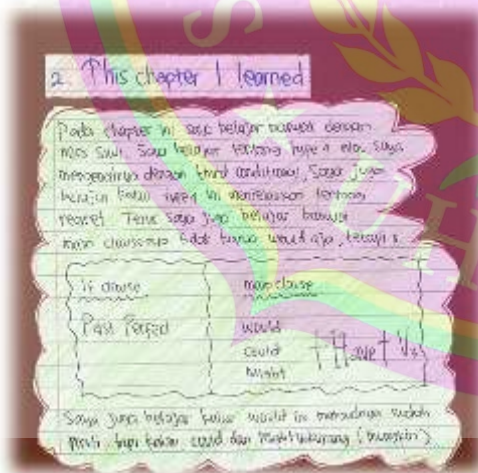 2. This chapter I learned
Pada chapter ini saya belajar banyak dengan
Saya belajar tentang type
dengan third conditional, Saya juga
belajar type ini tentang
regret. Terus saya juga belajar bahwa
main clausenya tidak hanya would aja, tetapi:
if clause main clause
Past Perfect would
could + Have + V3
might
Saya juga belajar kalau would itu maksudnya sudah
pasti, tapi kalau could dan might (mungkin).